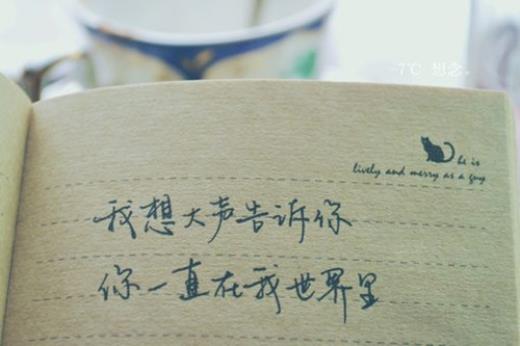 -7℃ 想念。
he is
lively and merry as a guy
我想大声告诉你
你一直在我世界里